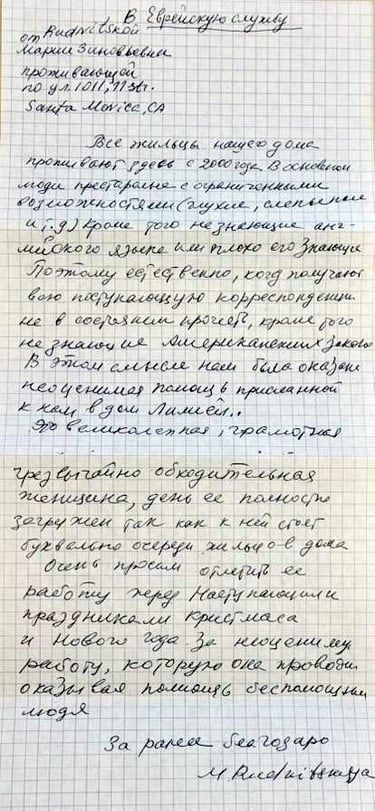 В Еврейскую службу
от Rudnitskoй
Марии Зиновьевны
проживающей
по ул. 1011, 11 St.
Santa Monica, CA
Все жильцы нашего дома
проживают здесь с 2000 года. В основном
люди престарелые с ограниченными
возможностями (глухие, слепые
и т.д) кроме того незнающие анг-
лийского языка или плохо его знающие
Поэтому естественно, когд получают
всю поступающую корреспонденцию
не в состоянии прочесть, кроме того
не знающие Американских законов
В этом смысле нам была оказана
неоценимая помощь присланной
к нам в дом Лилией..
Это великолепная, грамотная
чрезвычайно обходительная
женщина, день ее полностью
загружен так как к ней стоят
буквально очереди жильцов дома
Очень просим отметить ее
работу перед Наступающими
праздниками Кристмаса
и Нового года за неоценимую
работу, которую она проводит
оказывая помощь беспомощным
людя
За ранее благодарю
M. Rudnitskaya